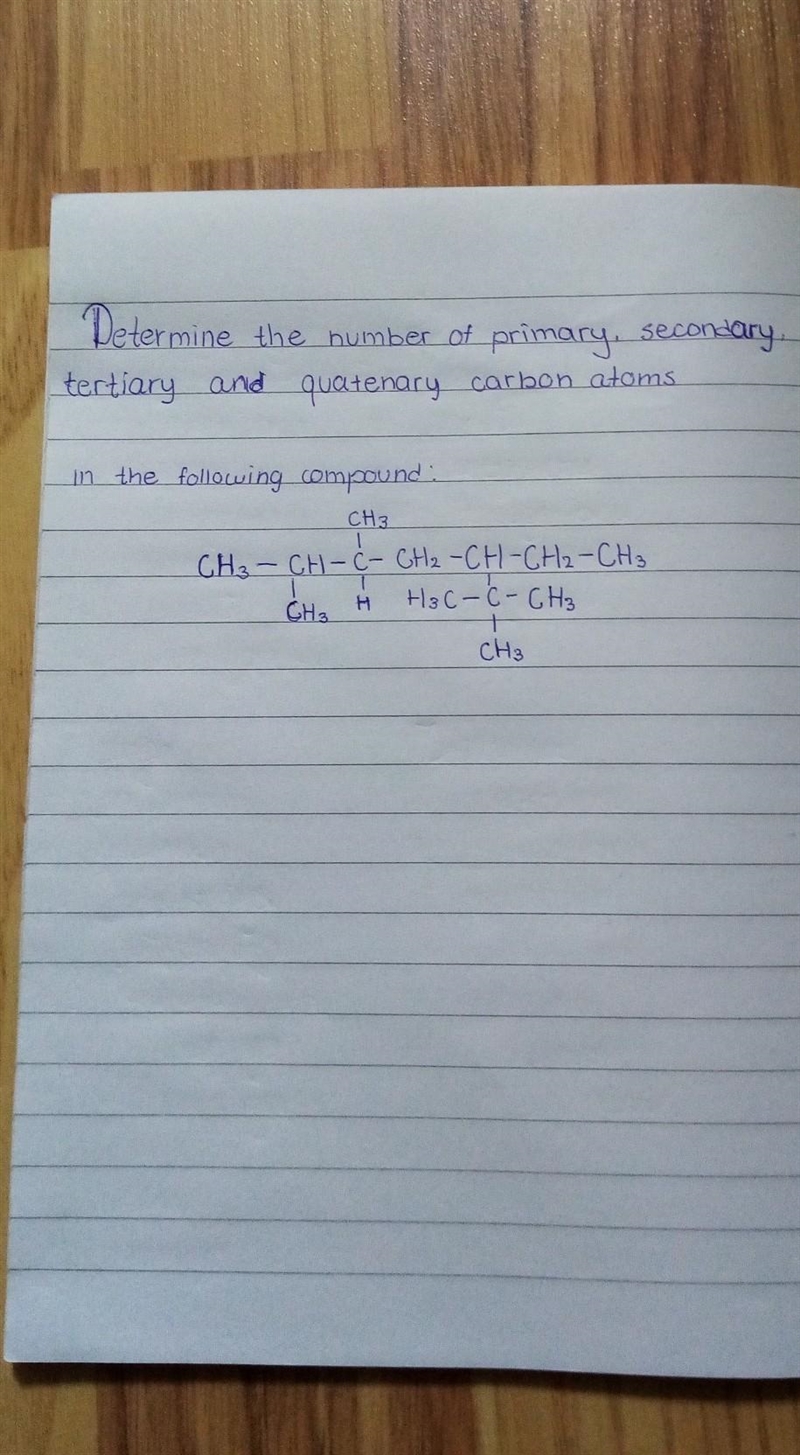 Determine the number of primary, secondary,
tertiary and quatenary carbon atoms
in the following compound:
CH3
CH3 - CH - C - CH2 - CH - CH2 - CH3
CH3 H H3C - C - CH3
CH3